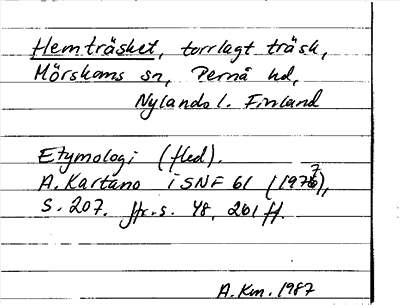 Hemträsket, torrlagt träsk,
Mörskoms sn, Pernå hd,
Nylands l. Finland
Etymologi (fled).
A. Kartano i SNF 61 (1977),
s. 207. Jfr. s. 48, 261 ff.
A. Km. 1987